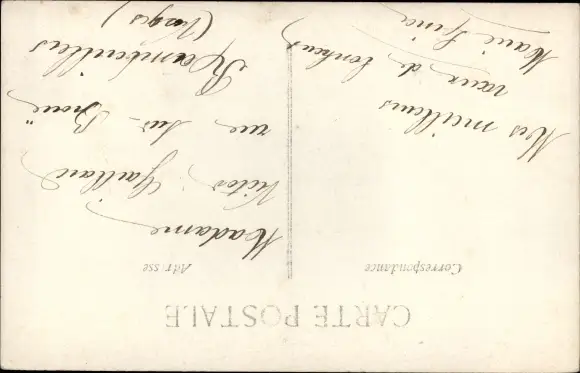 CARTE POSTALE
Correspondance
Adresse
Mes meilleurs
vœux de bonheur
Marie
Madame
Victor Gaillard
rue sur Broué
Rambervillers
(Vosges)